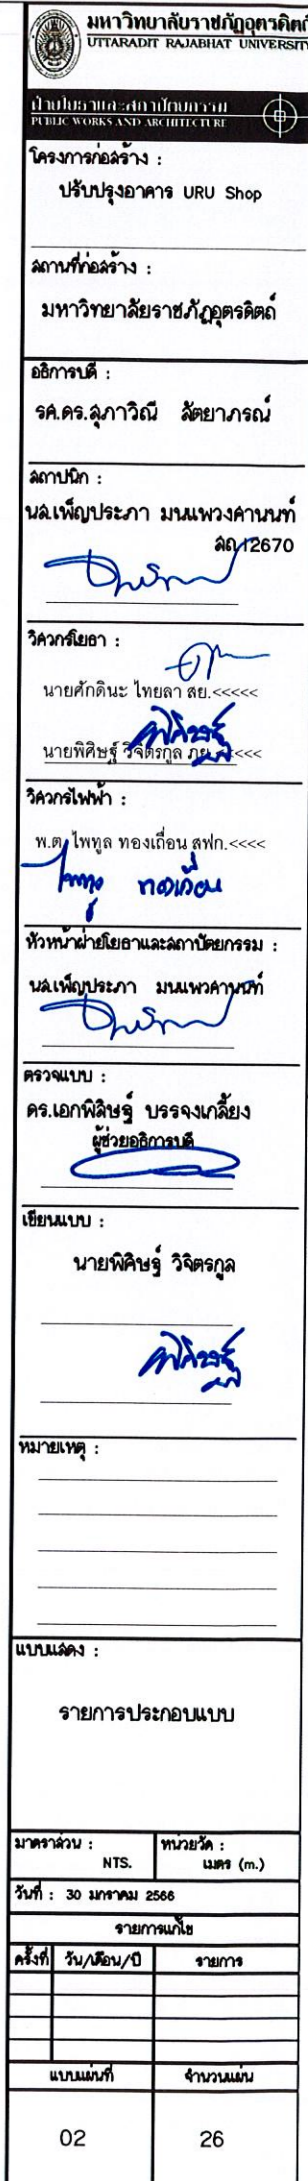 มหาวิทยาลัยราชภัฏอุตรดิตถ์
UTTARADIT RAJABHAT UNIVERSITY
ฝ่ายโยธาและสถาปัตยกรรม
PUBLIC WORKS AND ARCHITECTURE
โครงการก่อสร้าง :
ปรับปรุงอาคาร URU Shop
สถานที่ก่อสร้าง :
มหาวิทยาลัยราชภัฏอุตรดิตถ์
อธิการบดี :
รศ.ดร.สุภาวิณี สัตยาภรณ์
สถาปนิก :
นส.เพ็ญประภา มนแพวงคานนท์
สถ12670
วิศวกรโยธา :
นายศักดินะ ไทยลา สย.<<<<<
นายพิศิษฐ์ วิจิตรกูล ภย.<<<<<
วิศวกรไฟฟ้า :
พ.ต. ไพทูล ทองเถื่อน สฟก.<<<<
หัวหน้าฝ่ายโยธาและสถาปัตยกรรม :
นส.เพ็ญประภา มนแพวคานนท์
ตรวจแบบ :
ดร.เอกพิสิษฐ์ บรรจงเกลี้ยง
ผู้ช่วยอธิการบดี
เขียนแบบ :
นายพิศิษฐ์ วิจิตรกูล
หมายเหตุ :
แบบแสดง :
รายการประกอบแบบ
มาตราส่วน : หน่วยวัด :
NTS. เมตร (m.)
วันที่ : 30 มกราคม 2566
รายการแก้ไข
ครั้งที่ วัน/เดือน/ปี รายการ
แบบแผ่นที่ จำนวนแผ่น
02 26